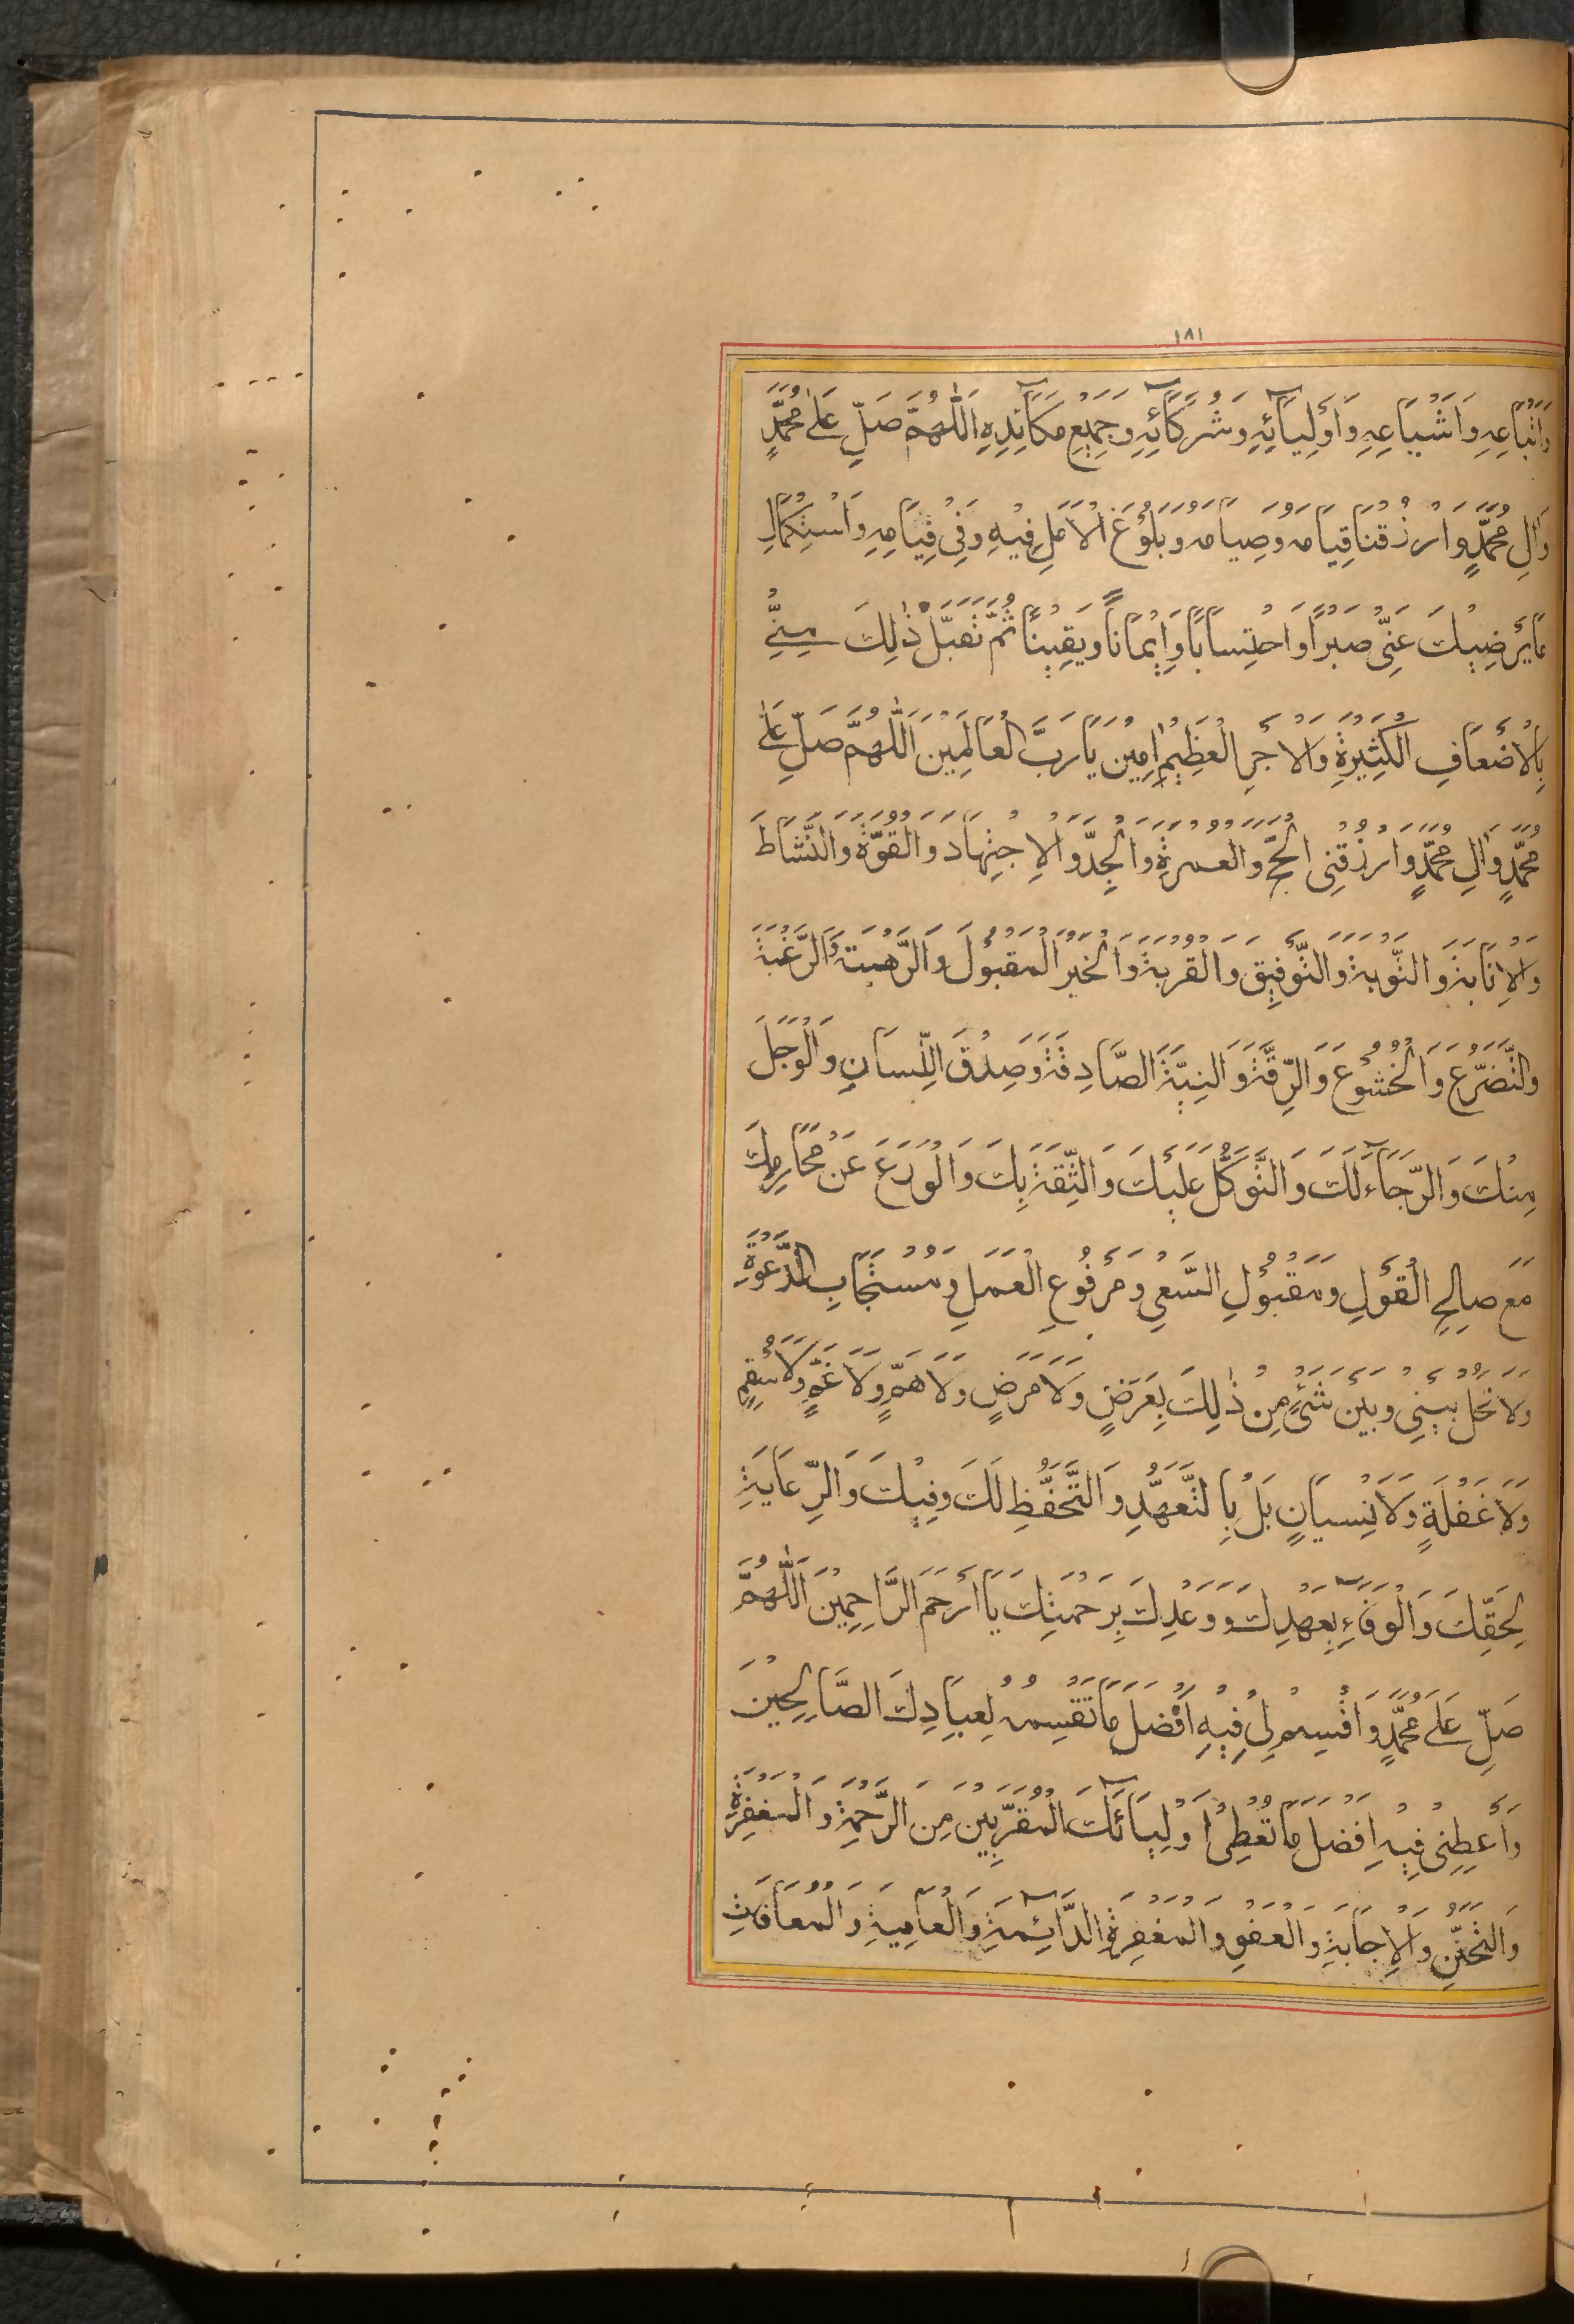 ١٨١
وَاَتْبَاعِهِ وَاَشْيَاعِهِ وَاَوْلِيَآئِهِ وَشُرَكَآئِهِ وَجَمِيْعِ مَكَآئِدِهِ اَللّٰهُمَّ صَلِّ عَلٰى مُحَمَّدٍ
وَاٰلِ مُحَمَّدٍ وَارْزُقْنَا قِيَامَهُ وَصِيَامَهُ وَبُلُوْغَ الْاَمَلِ فِيْهِ وَفِيْ قِيَامِهِ وَاسْتِكْمَالِ
مَا يُرْضِيْكَ عَنِّيْ صَبْرًا وَاحْتِسَابًا وَاِيْمَانًا وَيَقِيْنًا ثُمَّ تَقَبَّلْ ذٰلِكَ مِنِّيْ
بِالْاَضْعَافِ الْكَثِيْرَةِ وَالْاَجْرِ الْعَظِيْمِ اٰمِيْنَ يَا رَبَّ الْعَالَمِيْنَ اَللّٰهُمَّ صَلِّ عَلٰى
مُحَمَّدٍ وَاٰلِ مُحَمَّدٍ وَارْزُقْنِى الْحَجَّ وَالْعُمْرَةَ وَالْجِدَّ وَالْاِجْتِهَادَ وَالْقُوَّةَ وَالنَّشَاطَ
وَالْاِنَابَةَ وَالتَّوْبَةَ وَالتَّوْفِيْقَ وَالْقُرْبَةَ وَالْخَيْرَ الْمَقْبُوْلَ وَالرَّهْبَةَ وَالرَّغْبَةَ
وَالتَّضَرُّعَ وَالْخُشُوْعَ وَالرِّقَّةَ وَالنِّيَّةَ الصَّادِقَةَ وَصِدْقَ اللِّسَانِ وَالْوَجَلَ
مِنْكَ وَالرَّجَآءَ لَكَ وَالتَّوَكُّلَ عَلَيْكَ وَالثِّقَةَ بِكَ وَالْوَرَعَ عَنْ مَحَارِمِكَ
مَعَ صَالِحِ الْقَوْلِ وَمَقْبُوْلِ السَّعْيِ وَمَرْفُوْعِ الْعَمَلِ وَمُسْتَجَابِ الدَّعْوَةِ
وَلَا تَحُلْ بَيْنِيْ وَبَيْنَ شَيْءٍ مِنْ ذٰلِكَ بِعَرَضٍ وَلَا مَرَضٍ وَلَا هَمٍّ وَلَا غَمٍّ وَلَا سُقْمٍ
وَلَا غَفْلَةٍ وَلَا نِسْيَانٍ بَلْ بِالتَّعَهُّدِ وَالتَّحَفُّظِ لَكَ وَفِيْكَ وَالرِّعَايَةِ
لِحَقِّكَ وَالْوَفَآءِ بِعَهْدِكَ وَوَعْدِكَ بِرَحْمَتِكَ يَا اَرْحَمَ الرَّاحِمِيْنَ اَللّٰهُمَّ
صَلِّ عَلٰى مُحَمَّدٍ وَاقْسِمْ لِيْ فِيْهِ اَفْضَلَ مَا تَقْسِمُهُ لِعِبَادِكَ الصَّالِحِيْنَ
وَاَعْطِنِيْ فِيْهِ اَفْضَلَ مَا تُعْطِيْ اَوْلِيَآئَكَ الْمُقَرَّبِيْنَ مِنَ الرَّحْمَةِ وَالْمَغْفِرَةِ
وَالتَّحَنُّنِ وَالْاِجَابَةِ وَالْعَفْوِ وَالْمَغْفِرَةِ الدَّآئِمَةِ وَالْعَافِيَةِ وَالْمُعَافَاتِ